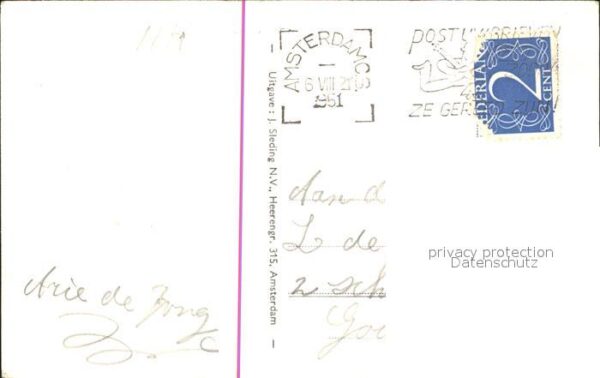 11/9
AMSTERDAM CS
6 VIII 21
1951
POST UW BRIEVEN
ZE GER
NEDERLAND
2
CENT
Uitgave : J. Sleding N.V., Heerengr. 315, Amsterdam
Aan d
L de
2 sch
Go
privacy protection
Datenschutz
Arie de Jong